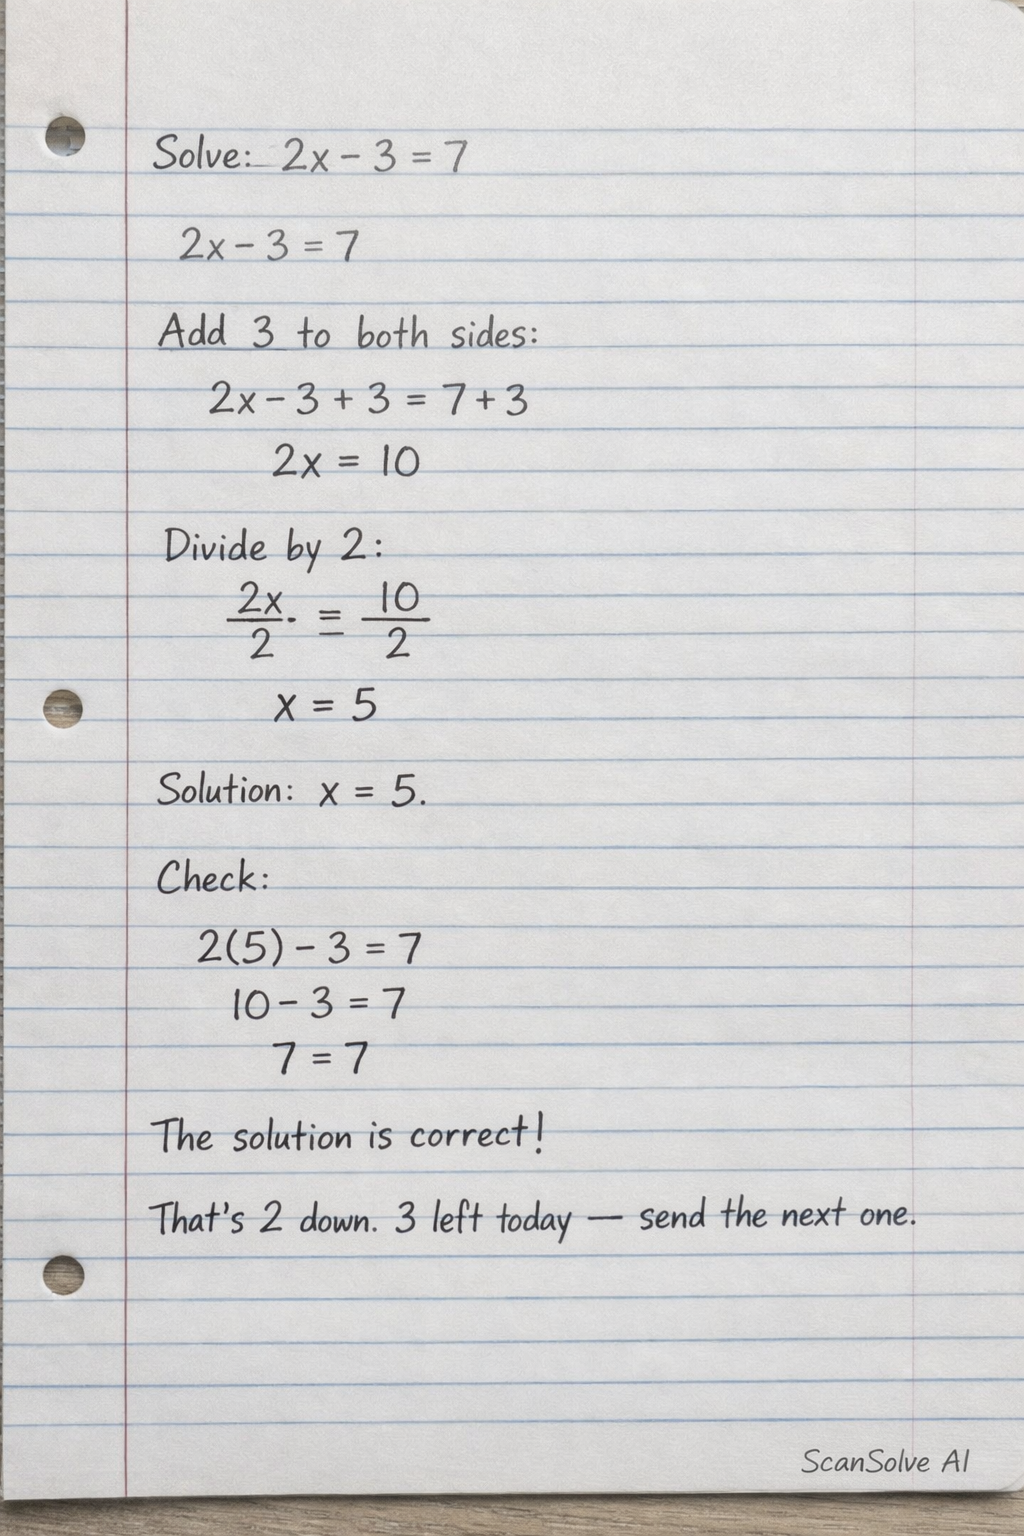 Solve: 2x - 3 = 7
2x - 3 = 7
Add 3 to both sides:
2x - 3 + 3 = 7 + 3
2x = 10
Divide by 2:
2x/2 = 10/2
x = 5
Solution: x = 5.
Check:
2(5) - 3 = 7
10 - 3 = 7
7 = 7
The solution is correct!
That's 2 down. 3 left today — send the next one.
ScanSolve AI